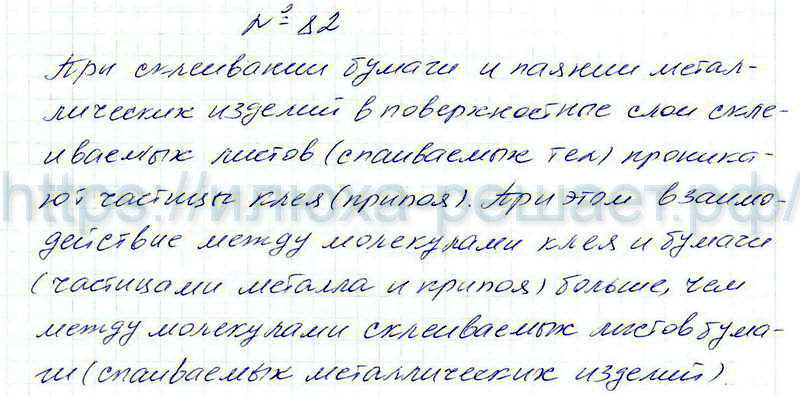 № 82
При склеивании бумаги и паянии метал-
лических изделий в поверхностные слои скле-
иваемых листов (спаиваемых тел) проника-
ют частицы клея (припоя). При этом взаимо-
https://ипоха-решает.рф/
действие между молекулами клея и бумаги
(частицами металла и припоя) больше, чем
между молекулами склеиваемых листов бума-
ги (спаиваемых металлических изделий).